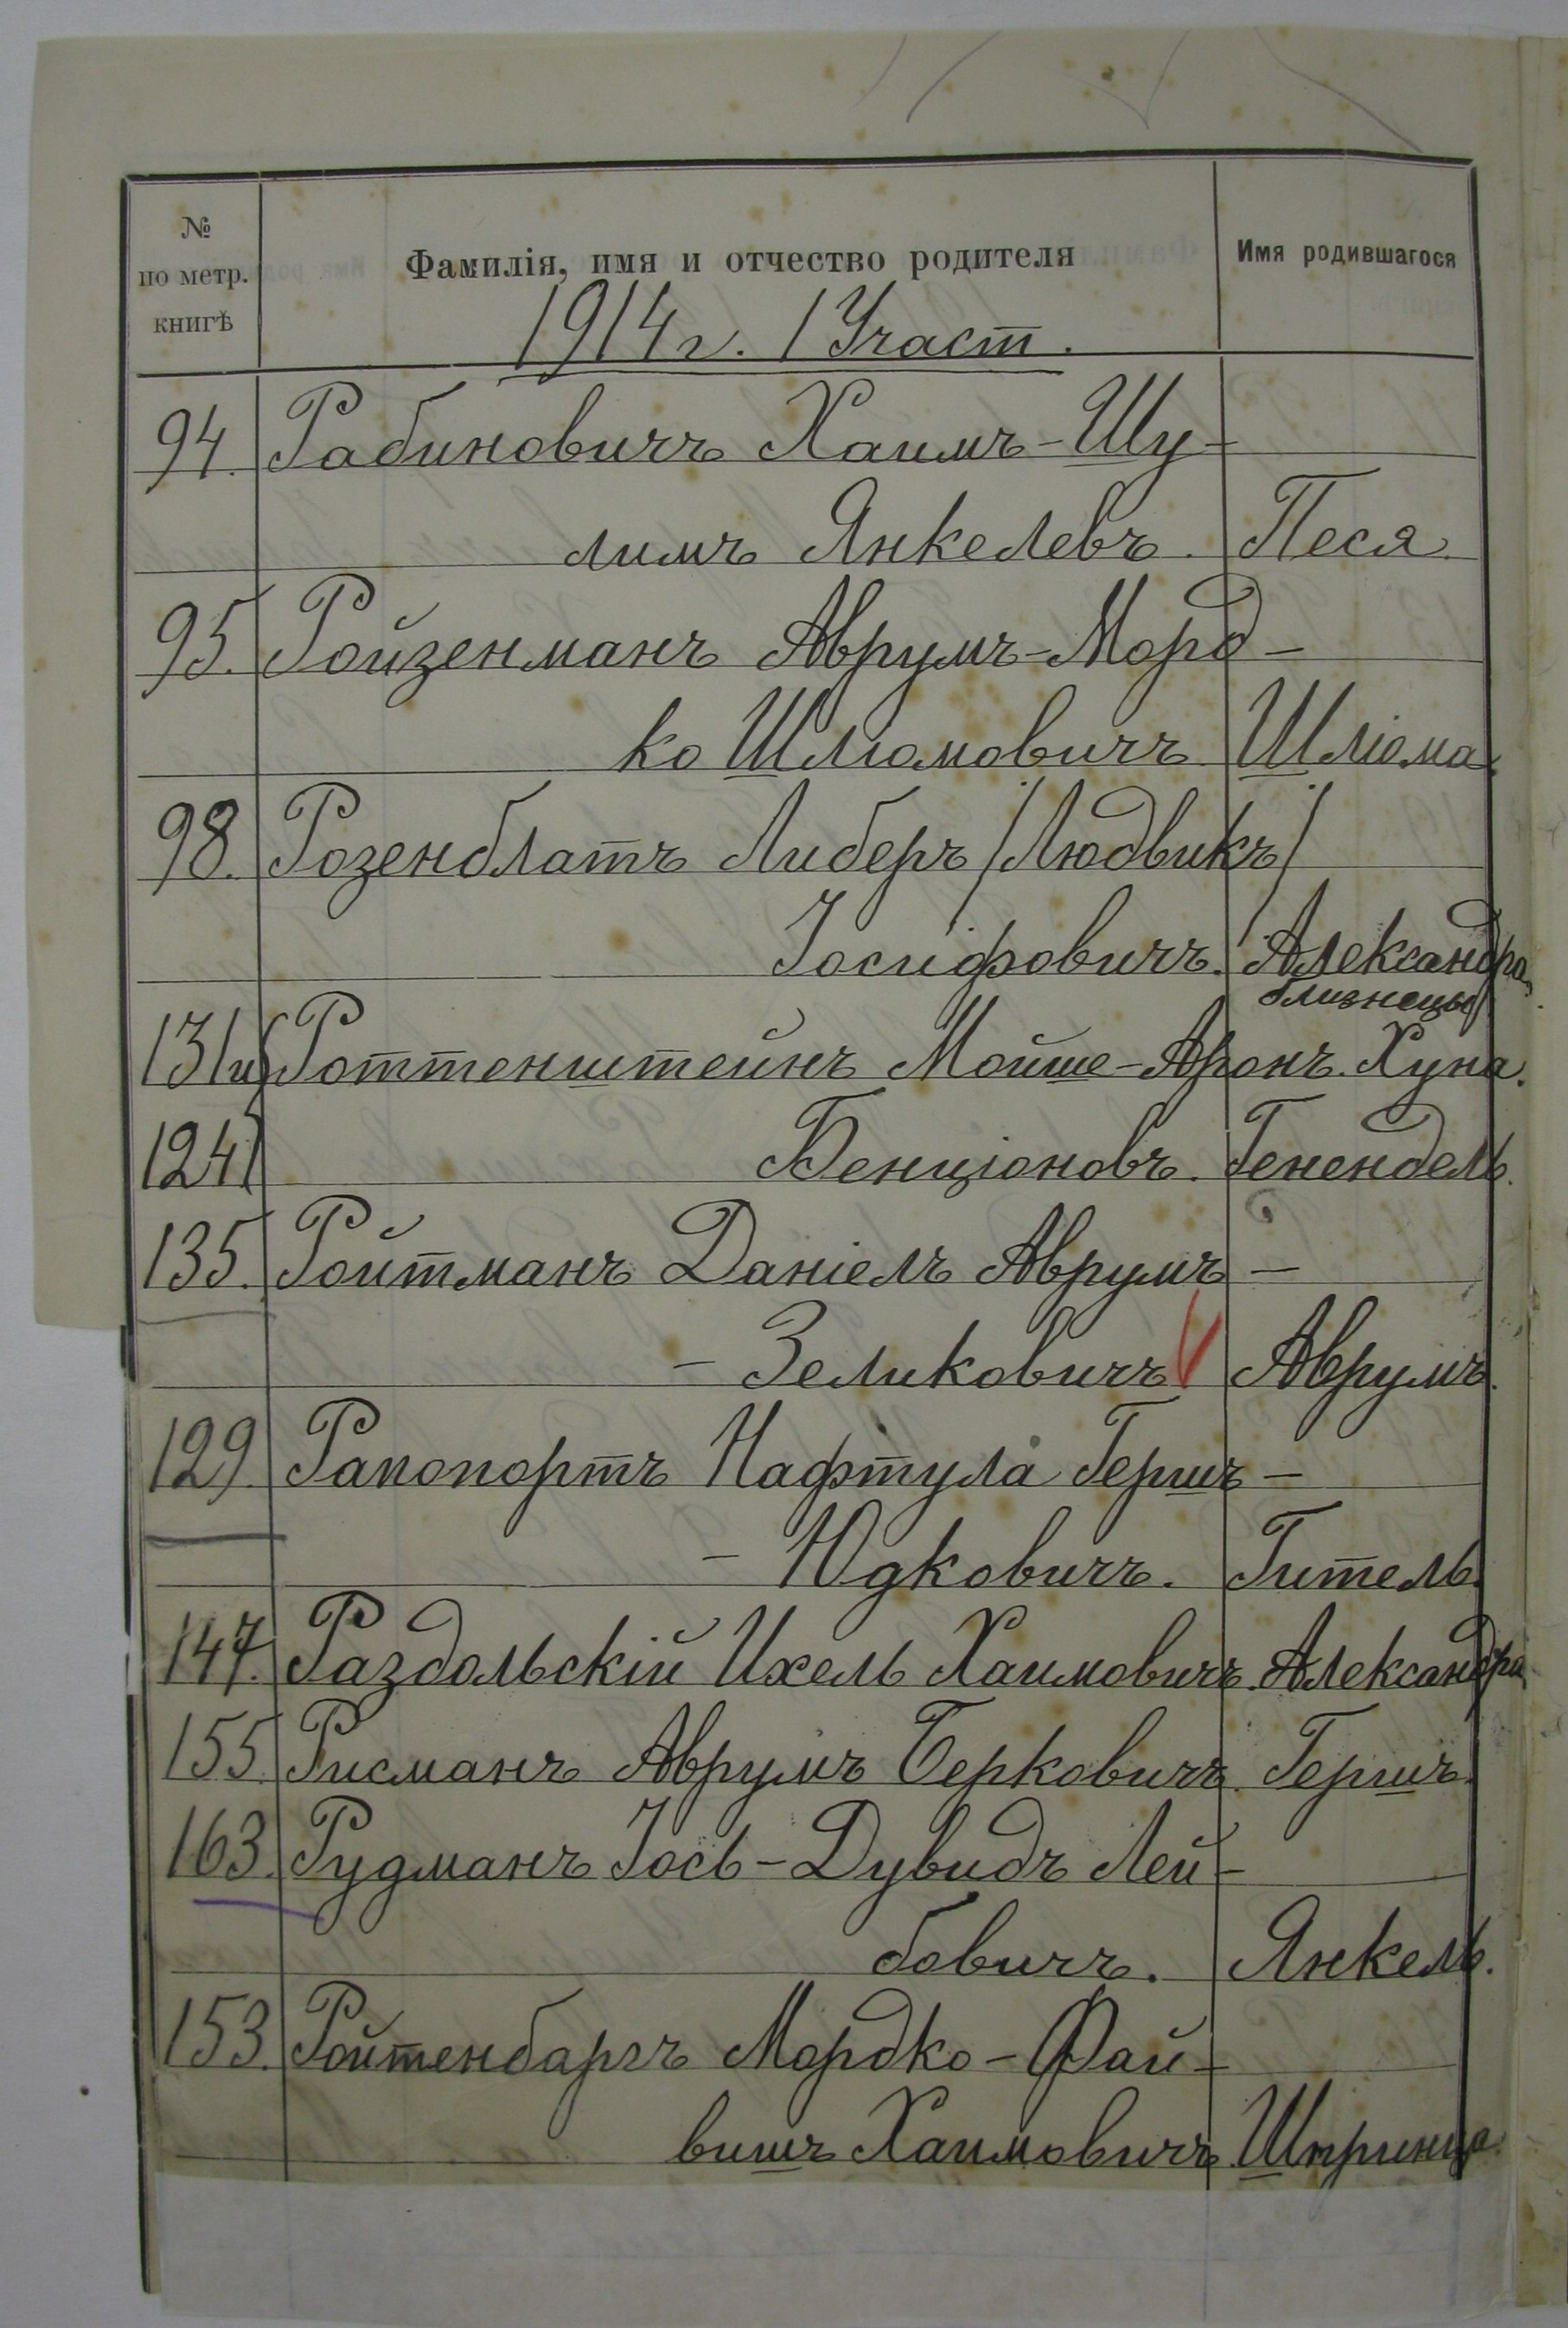 № по метр. книгѣ
Фамилія, имя и отчество родителя
Имя родившагося
1914 г. 1 Участ.
94. Рабиновичъ Хаимъ-Шу-
лимъ Янкелевъ. Песя.
95. Ройзенманъ Аврумъ-Морд-
ко Шліомовичъ. Шліома.
98. Розенблатъ Либеръ /Людвикъ/
Іосифовичъ. Александра
близнецы
131 и Роттенштейнъ Мойше-Аронъ. Хуна.
124 Бенціоновъ. Генендель.
135. Ройтманъ Даніелъ Аврумъ-
- Зеликовичъ Аврумъ.
129. Рапопортъ Нафтула Гершъ-
- Юдковичъ. Гитель.
147. Раздольскій Ихель Хаимовичъ. Александра
155. Рисманъ Аврумъ Берковичъ. Гершъ.
163. Рудманъ Іось-Дувидъ Лей-
бовичъ. Янкель.
153. Ройтенбаргъ Мордко-Фай-
вишъ Хаимовичъ. Шпринца.